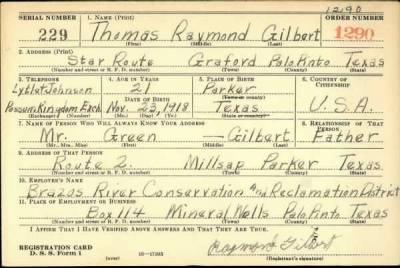 1290
SERIAL NUMBER 1. NAME (Print) ORDER NUMBER
229 Thomas Raymond Gilbert 1290
(First) (Middle) (Last)
2. ADDRESS (Print)
Star Route Graford Palo Pinto Texas
(Number and street or R. F. D. number) (Town) (County) (State)
3. TELEPHONE 4. AGE IN YEARS 5. PLACE OF BIRTH 6. COUNTRY OF CITIZENSHIP
21 Parker
(Town or county)
Possum Kingdom Exch. DATE OF BIRTH Texas U.S.A.
Nov. 23, 1918
(Exchange) (Number) (Mo.) (Day) (Yr.) (State or country)
7. NAME OF PERSON WHO WILL ALWAYS KNOW YOUR ADDRESS 8. RELATIONSHIP OF THAT PERSON
Mr. Green — Gilbert Father
(Mr., Mrs., Miss) (First) (Middle) (Last)
9. ADDRESS OF THAT PERSON
Route 2. Millsap Parker Texas
(Number and street or R. F. D. number) (Town) (County) (State)
10. EMPLOYER'S NAME
Brazos River Conservation and Reclamation District
11. PLACE OF EMPLOYMENT OR BUSINESS
Box 114 Mineral Wells Palo Pinto Texas
(Number and street or R. F. D. number) (Town) (County) (State)
I AFFIRM THAT I HAVE VERIFIED ABOVE ANSWERS AND THAT THEY ARE TRUE.
REGISTRATION CARD
D. S. S. Form 1 (over) Raymond Gilbert
(Registrant's signature)